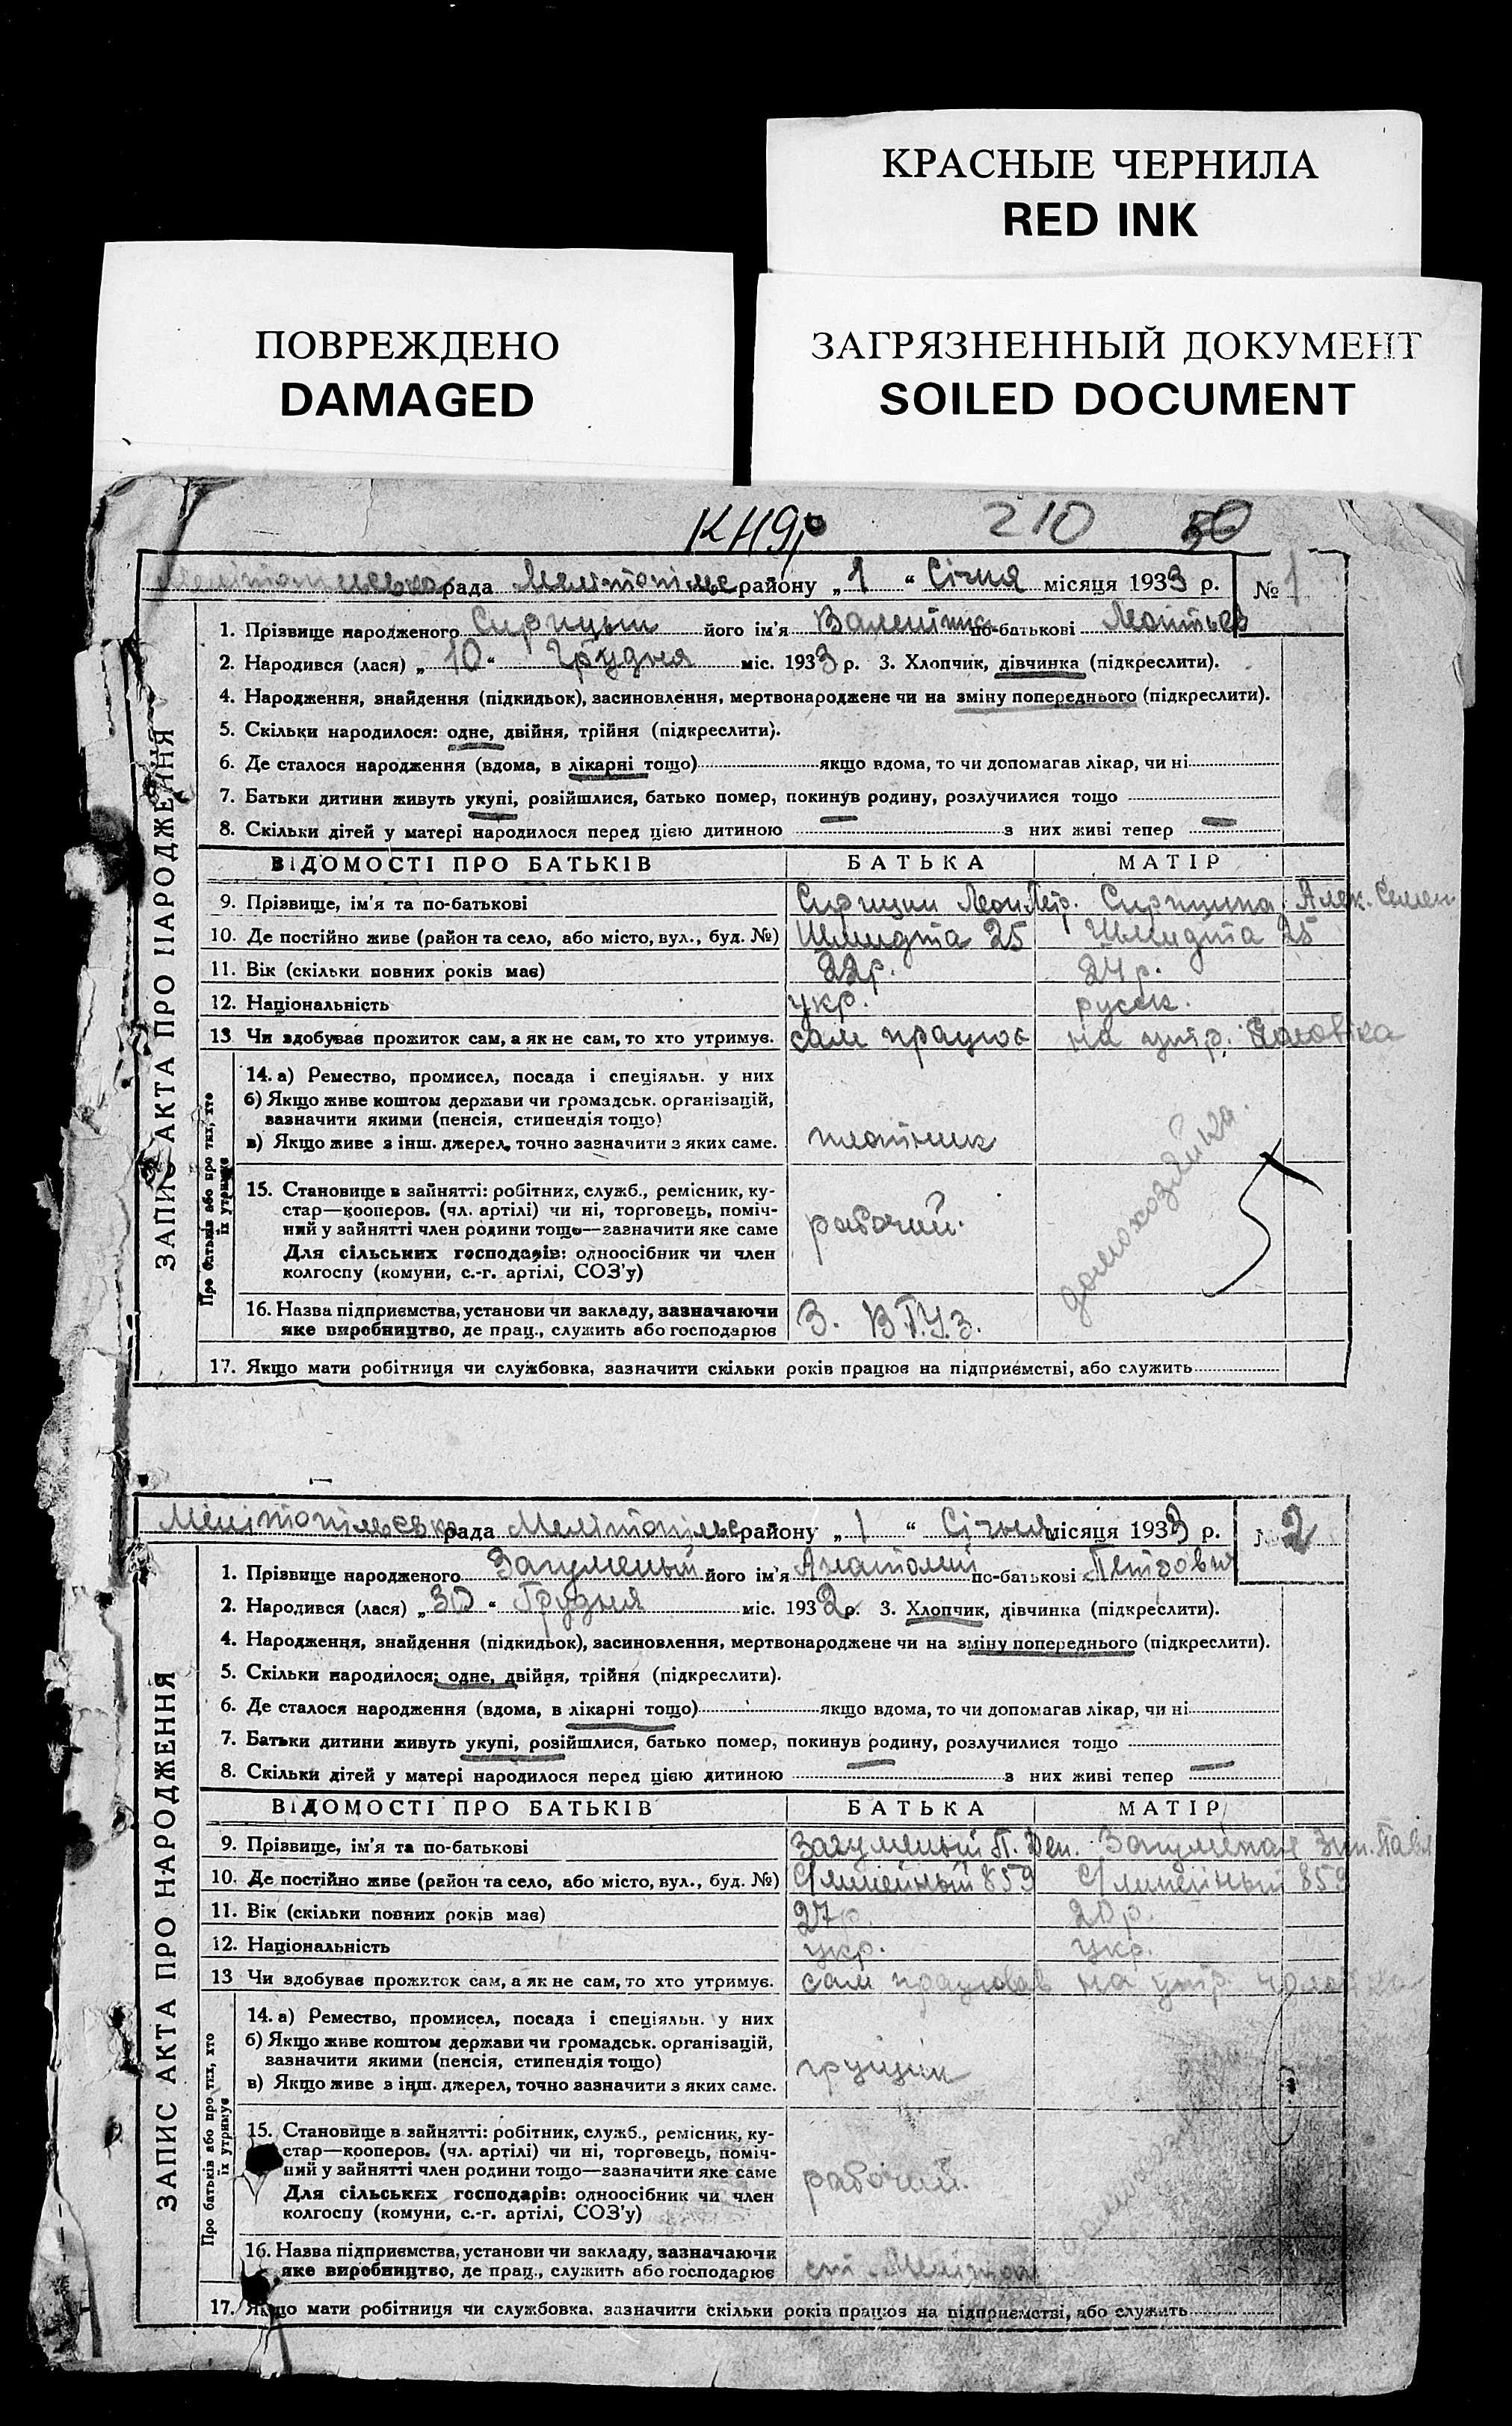 КРАСНЫЕ ЧЕРНИЛА
RED INK
ПОВРЕЖДЕНО
DAMAGED
ЗАГРЯЗНЕННЫЙ ДОКУМЕНТ
SOILED DOCUMENT
210 50
ЗАПИС АКТА ПРО НАРОДЖЕННЯ
рада Мелітопільс району „1“ Січня місяця 1933 р. № 1
1. Прізвище народженого його ім'я Валентина по-батькові Леонтьев
2. Народився (лася) „10“ Грудня міс. 1933 р. 3. Хлопчик, дівчинка (підкреслити).
4. Народження, знайдення (підкидьок), засиновлення, мертвонароджене чи на зміну попереднього (підкреслити).
5. Скільки народилося: одне, двійня, трійня (підкреслити).
6. Де сталося народження (вдома, в лікарні тощо) якщо вдома, то чи допомагав лікар, чи ні
7. Батьки дитини живуть укупі, розійшлися, батько помер, покинув родину, розлучилися тощо
8. Скільки дітей у матері народилося перед цією дитиною — з них живі тепер —
ВІДОМОСТІ ПРО БАТЬКІВ БАТЬКА МАТІР
9. Прізвище, ім'я та по-батькові Алек. Семен
10. Де постійно живе (район та село, або місто, вул., буд. №) Шмидта 25 Шмидта 25
11. Вік (скільки повних років має) 22р. 24р.
12. Національність укр. русск.
13 Чи здобував прожиток сам, а як не сам, то хто утримує. сам працює на утр. чоловіка
Про батьків або про тих, хто їх утримує
14. а) Ремество, промисел, посада і спеціяльн. у них
б) Якщо живе коштом держави чи громадськ. організацій,
зазначити якими (пенсія, стипендія тощо)
в) Якщо живе з інш. джерел, точно зазначити з яких саме. плотник
домохозяйка.
15. Становище в зайнятті: робітник, служб., ремісник, ку-
стар—кооперов. (чл. артілі) чи ні, торговець, поміч-
ний у зайнятті член родини тощо—зазначити яке саме рабочий.
Для сільських господарів: одноосібник чи член
колгоспу (комуни, с.-г. артілі, СОЗ'у)
16. Назва підприємства, установи чи закладу, зазначаючи
яке виробництво, де прац., служить або господарює
17. Якщо мати робітниця чи службовка, зазначити скільки років працює на підприємстві, або служить
ЗАПИС АКТА ПРО НАРОДЖЕННЯ
рада Мелітопільс району „1“ Січня місяця 1933 р. № 2
1. Прізвище народженого Загуменый його ім'я Анатолий по-батькові Петрович
2. Народився (лася) „30“ Грудня міс. 1932 р. 3. Хлопчик, дівчинка (підкреслити).
4. Народження, знайдення (підкидьок), засиновлення, мертвонароджене чи на зміну попереднього (підкреслити).
5. Скільки народилося: одне, двійня, трійня (підкреслити).
6. Де сталося народження (вдома, в лікарні тощо) якщо вдома, то чи допомагав лікар, чи ні
7. Батьки дитини живуть укупі, розійшлися, батько помер, покинув родину, розлучилися тощо
8. Скільки дітей у матері народилося перед цією дитиною — з них живі тепер —
ВІДОМОСТІ ПРО БАТЬКІВ БАТЬКА МАТІР
9. Прізвище, ім'я та по-батькові Загуменый П.
10. Де постійно живе (район та село, або місто, вул., буд. №) С/линейный 859 С/линейный 859
11. Вік (скільки повних років має) 27р. 20р.
12. Національність укр. укр.
13 Чи здобував прожиток сам, а як не сам, то хто утримує. сам працював на утр. чоловіка
Про батьків або про тих, хто їх утримує
14. а) Ремество, промисел, посада і спеціяльн. у них
б) Якщо живе коштом держави чи громадськ. організацій,
зазначити якими (пенсія, стипендія тощо)
в) Якщо живе з інш. джерел, точно зазначити з яких саме. грущик
15. Становище в зайнятті: робітник, служб., ремісник, ку-
стар—кооперов. (чл. артілі) чи ні, торговець, поміч-
ний у зайнятті член родини тощо—зазначити яке саме рабочий.
Для сільських господарів: одноосібник чи член
колгоспу (комуни, с.-г. артілі, СОЗ'у)
16. Назва підприємства, установи чи закладу, зазначаючи
яке виробництво, де прац., служить або господарює
17. Якщо мати робітниця чи службовка, зазначити скільки років працює на підприємстві, або служить